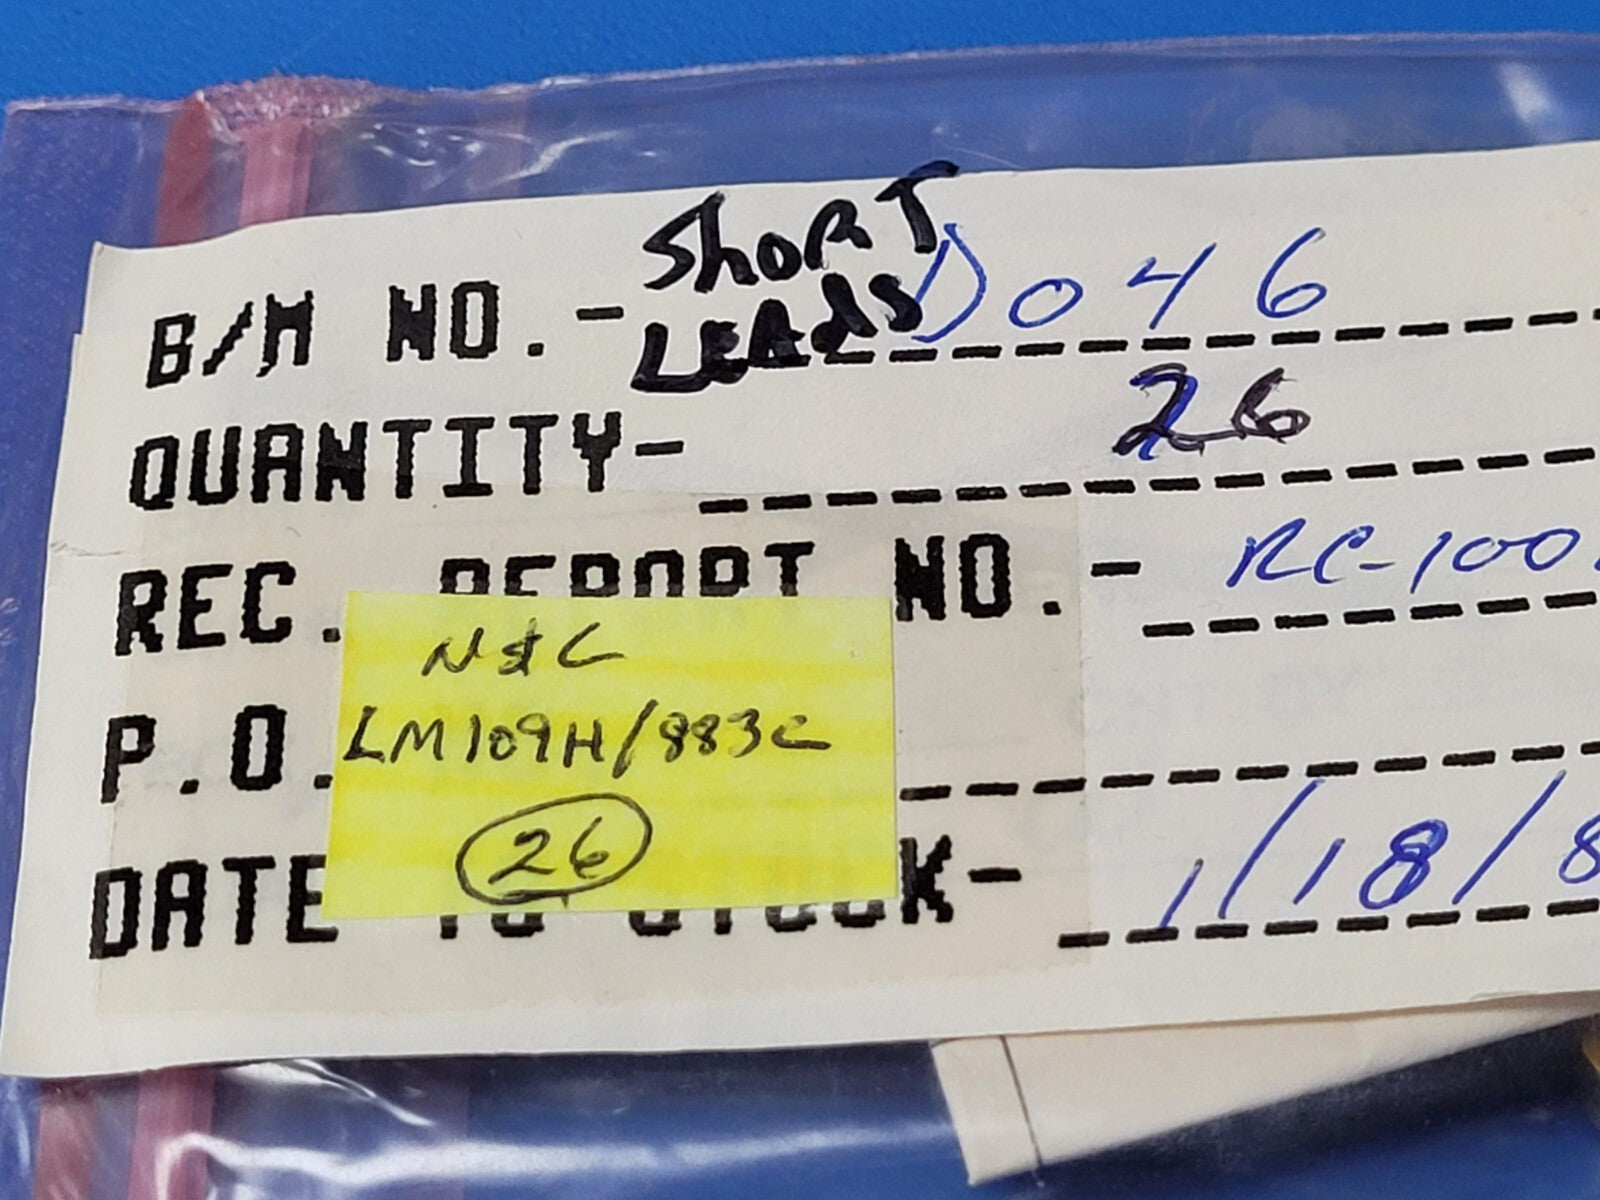 SHORT
B/M NO.- LEADS D046
QUANTITY- 26
REC. REPORT NO. - RC-100
NSC
P.O. LM109H/883C
26
DATE TO STOCK- 1/18/8